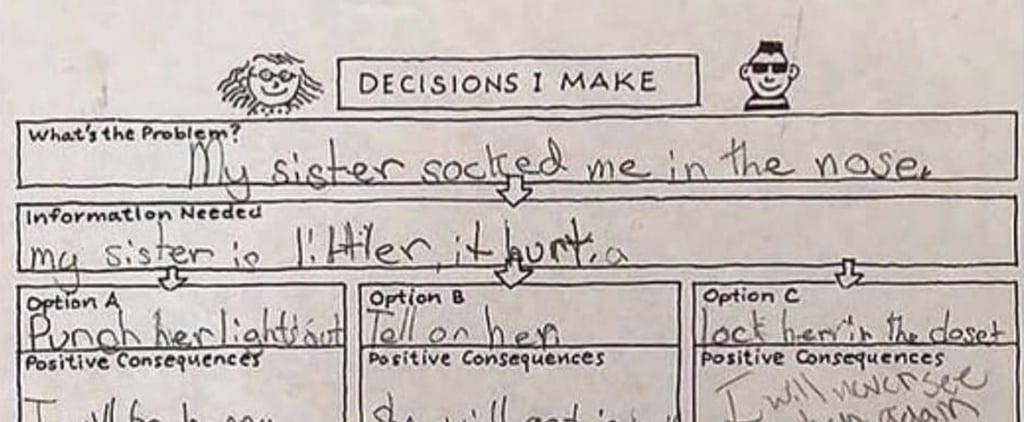 DECISIONS I MAKE
What's the Problem?
My sister socked me in the nose.
Information Needed
my sister is littler, it hurt. a
Option A
Punch her lights out
Option B
Tell on her
Option C
lock her in the closet
Positive Consequences
I will be
Positive Consequences
will get in
Positive Consequences
I will never see
her again